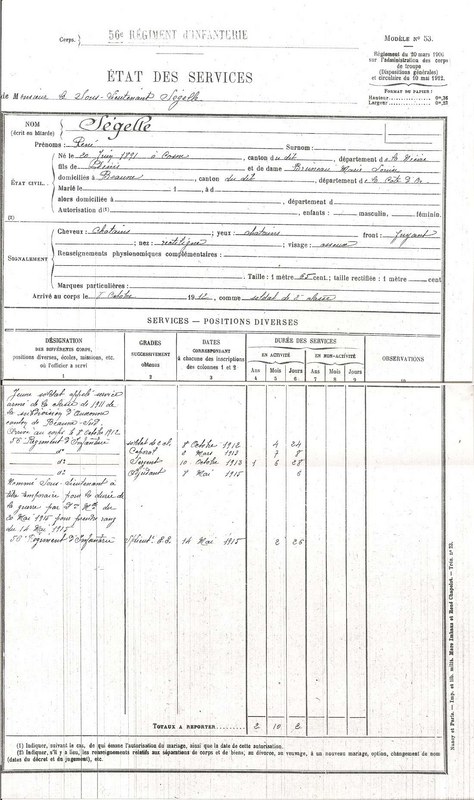 Corps. 56e RÉGIMENT D'INFANTERIE
MODÈLE No 53.
Règlement du 20 mars 1906
sur l'administration des corps
de troupe
(Dispositions générales)
et circulaire du 10 mai 1912.
FORMAT DE PAPIER :
Hauteur
Largeur
ÉTAT DES SERVICES
de Monsieur le Sous-Lieutenant Ségelle
NOM
(écrit en bâtarde)
Ségelle
Prénoms : René Surnom :
ÉTAT CIVIL.
(2)
Né le 20 Juin 1891 à Cosne, canton du dit, département de la Nièvre
fils de et de dame Bruneau Marie Louise
domiciliés à Beaune, canton du dit, département de la Côte d'Or
Marié le 1 , à d
alors domiciliée à , département d
Autorisation d(1) , enfants : masculin, féminin.
SIGNALEMENT
Cheveux : châtains ; yeux : châtains front : fuyant
; nez : rectiligne ; visage :
Renseignements physionomiques complémentaires :
Taille : 1 mètre cent ; taille rectifiée : 1 mètre cent
Marques particulières :
Arrivé au corps le 8 Octobre 1912, comme soldat de 2e classe
SERVICES — POSITIONS DIVERSES
DÉSIGNATION
DES DIFFÉRENTS CORPS,
positions diverses, écoles, missions, etc.
où l'officier a servi
1
GRADES
SUCCESSIVEMENT
obtenus
2
DATES
CORRESPONDANT
à chacune des inscriptions
des colonnes 1 et 2
3
DURÉE DES SERVICES
EN ACTIVITÉ
EN NON-ACTIVITÉ
Ans Mois Jours Ans Mois Jours
4 5 6 7 8 9
OBSERVATIONS
10
Jeune soldat appelé service
armé de la classe de 1911 de
la subdivision d'Auxonne
canton de Beaune-Sud.
Arrivé au corps le 8 Octobre 1912
56e Régiment d'Infanterie soldat de 2e cl. 8 Octobre 1912 4 24
do Caporal 2 Mars 1913 7 8
do Sergent 10 Octobre 1913 1 6 28
do Adjudant 8 Mai 1915 6
Nommé Sous-Lieutenant à
titre temporaire pour la durée de
la guerre par Don Mlle du
20 Mai 1915 pour prendre rang
du 14 Mai 1915
56e Régiment d'Infanterie 14 Mai 1915 2 26
TOTAUX A REPORTER 2 10 2
(1) Indiquer, suivant le cas, de qui émane l'autorisation du mariage, ainsi que la date de cette autorisation.
(2) Indiquer, s'il y a lieu, les renseignements relatifs aux séparations de corps et de biens, au divorce, au veuvage, à un nouveau mariage, option, changement de nom
(dates du décret et du jugement), etc.
Nancy et Paris. — Imp. et lib. milit. Marc Imhaus et René Chapelot. — Tric. no 23.